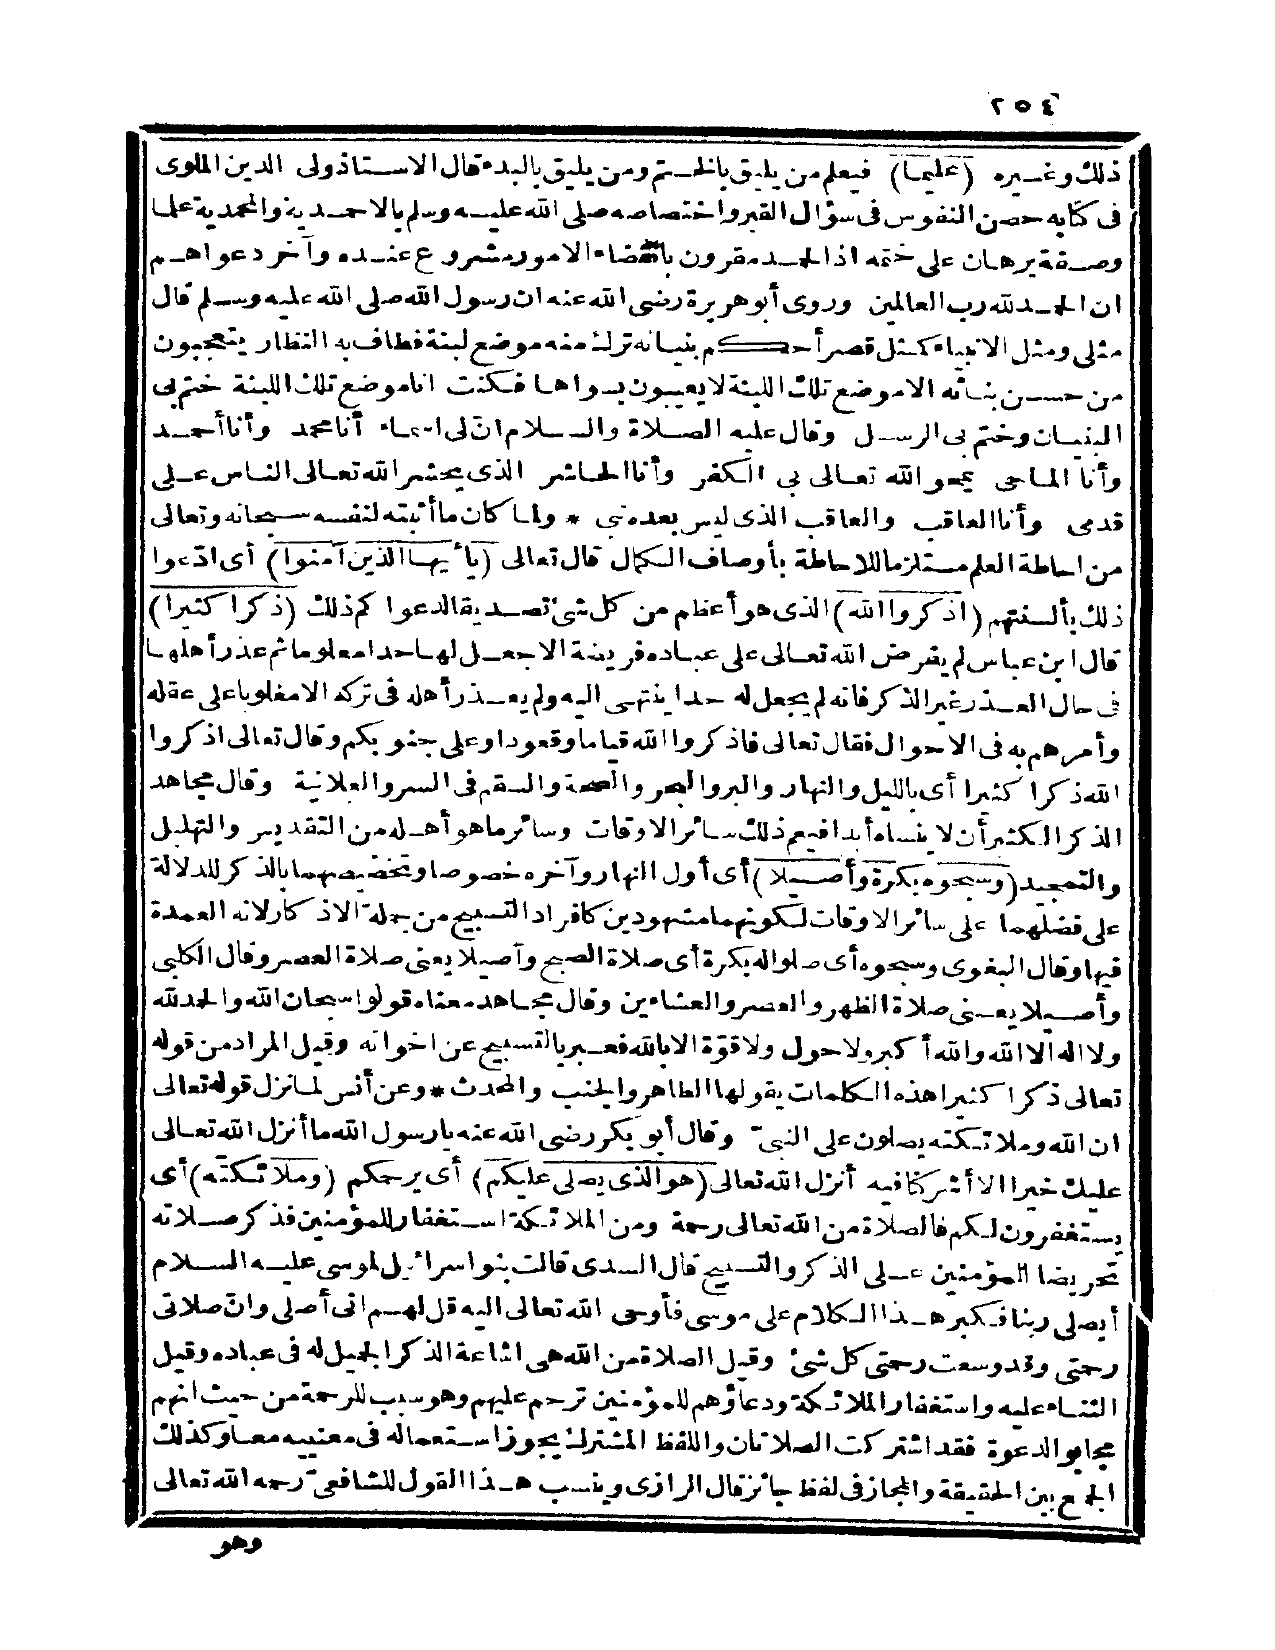 ٢٥٤
ذلك وغيره (عليما) فيعلم من يليق بالختم ومن يليق بالبدء قال الاستاذ ولى الدين الملوى
فى كتابه حصن النفوس فى سؤال القبر واختصاصه صلى الله عليه وسلم بالاحمدية والمحمدية علما
وصفة برهان على ختمه اذ الحمد مقرون بانقضاء الامور مشروع عنده وآخر دعواهم
ان الحمد لله رب العالمين وروى أبو هريرة رضى الله عنه ان رسول الله صلى الله عليه وسلم قال
مثلى ومثل الانبياء كمثل قصر أحكم بنيانه ترك منه موضع لبنة فطاف به النظار يتعجبون
من حسن بنائه الا موضع تلك اللبنة لا يعيبون بسواها فكنت انا موضع تلك اللبنة ختم بى
البنيان وختم بى الرسل وقال عليه الصلاة والسلام ان لى اسماء أنا محمد وأنا أحمد
وأنا الماحى يمحو الله تعالى بى الكفر وأنا الحاشر الذى يحشر الله تعالى الناس على
قدمى وأنا العاقب والعاقب الذى ليس بعده نبى * ولما كان ما أثبته لنفسه سبحانه وتعالى
من احاطة العلم مستلزما للاحاطة بأوصاف الكمال قال تعالى (يا أيها الذين آمنوا) أى ادّعوا
ذلك بألسنتهم (اذكروا الله) الذى هو أعظم من كل شئ تصديقا لدعواكم ذلك (ذكرا كثيرا)
قال ابن عباس لم يفرض الله تعالى على عباده فريضة الا جعل لها حدا معلوما ثم عذر أهلها
فى حال العذر غير الذكر فانه لم يجعل له حدا ينتهى اليه ولم يعذر أهله فى تركه الا مغلوبا على عقله
وأمرهم به فى الاحوال فقال تعالى فاذكروا الله قياما وقعودا وعلى جنوبكم وقال تعالى اذكروا
الله ذكرا كثيرا أى بالليل والنهار والبر والبحر والصحة والسقم فى السر والعلانية وقال مجاهد
الذكر الكثير أن لا ينساه أبدا فيعم ذلك سائر الاوقات وسائر ما هو أهله من التقديس والتهليل
والتمجيد (وسبحوه بكرة وأصيلا) أى أول النهار وآخره خصوصا وتخصيصهما بالذكر للدلالة
على فضلهما على سائر الاوقات لكونهما مشهودين كافراد التسبيح من جملة الاذكار لانه العمدة
فيها وقال البغوى وسبحوه أى صلوا له بكرة أى صلاة الصبح وآصيلا يعنى صلاة العصر وقال الكلبى
وأصيلا يعنى صلاة الظهر والعصر والعشاءين وقال مجاهد معناه قولوا سبحان الله والحمد لله
ولا اله الا الله والله أكبر ولا حول ولا قوّة الا بالله فعبر بالتسبيح عن اخواته وقيل المراد من قوله
تعالى ذكرا كثيرا هذه الكلمات يقولها الطاهر والجنب والمحدث * وعن أنس لما نزل قوله تعالى
ان الله وملائكته يصلون على النبىّ وقال أبو بكر رضى الله عنه يا رسول الله ما أنزل الله تعالى
عليك خيرا الا أشركنا فيه أنزل الله تعالى (هو الذى يصلى عليكم) أى يرحمكم (وملائكته) أى
يستغفرون لكم فالصلاة من الله تعالى رحمة ومن الملائكة استغفار للمؤمنين فذكر صلاته
تحريضا للمؤمنين على الذكر والتسبيح قال السدى قالت بنو اسرائيل لموسى عليه السلام
أيصلى ربنا فكبر هذا الكلام على موسى فأوحى الله تعالى اليه قل لهم انى أصلى وانّ صلاتى
رحمتى وقد وسعت رحمتى كل شئ وقيل الصلاة من الله هى اشاعة الذكر الجميل له فى عباده وقيل
الثناء عليه واستغفار الملائكة ودعاؤهم للمؤمنين ترحم عليهم وهو سبب للرحمة من حيث انهم
مجابو الدعوة فقد اشتركت الصلاتان واللفظ المشترك يجوز استعماله فى معنييه معا وكذلك
الجمع بين الحقيقة والمجاز فى لفظ جائز قال الرازى وينسب هذا القول للشافعىّ رحمه الله تعالى
وهو